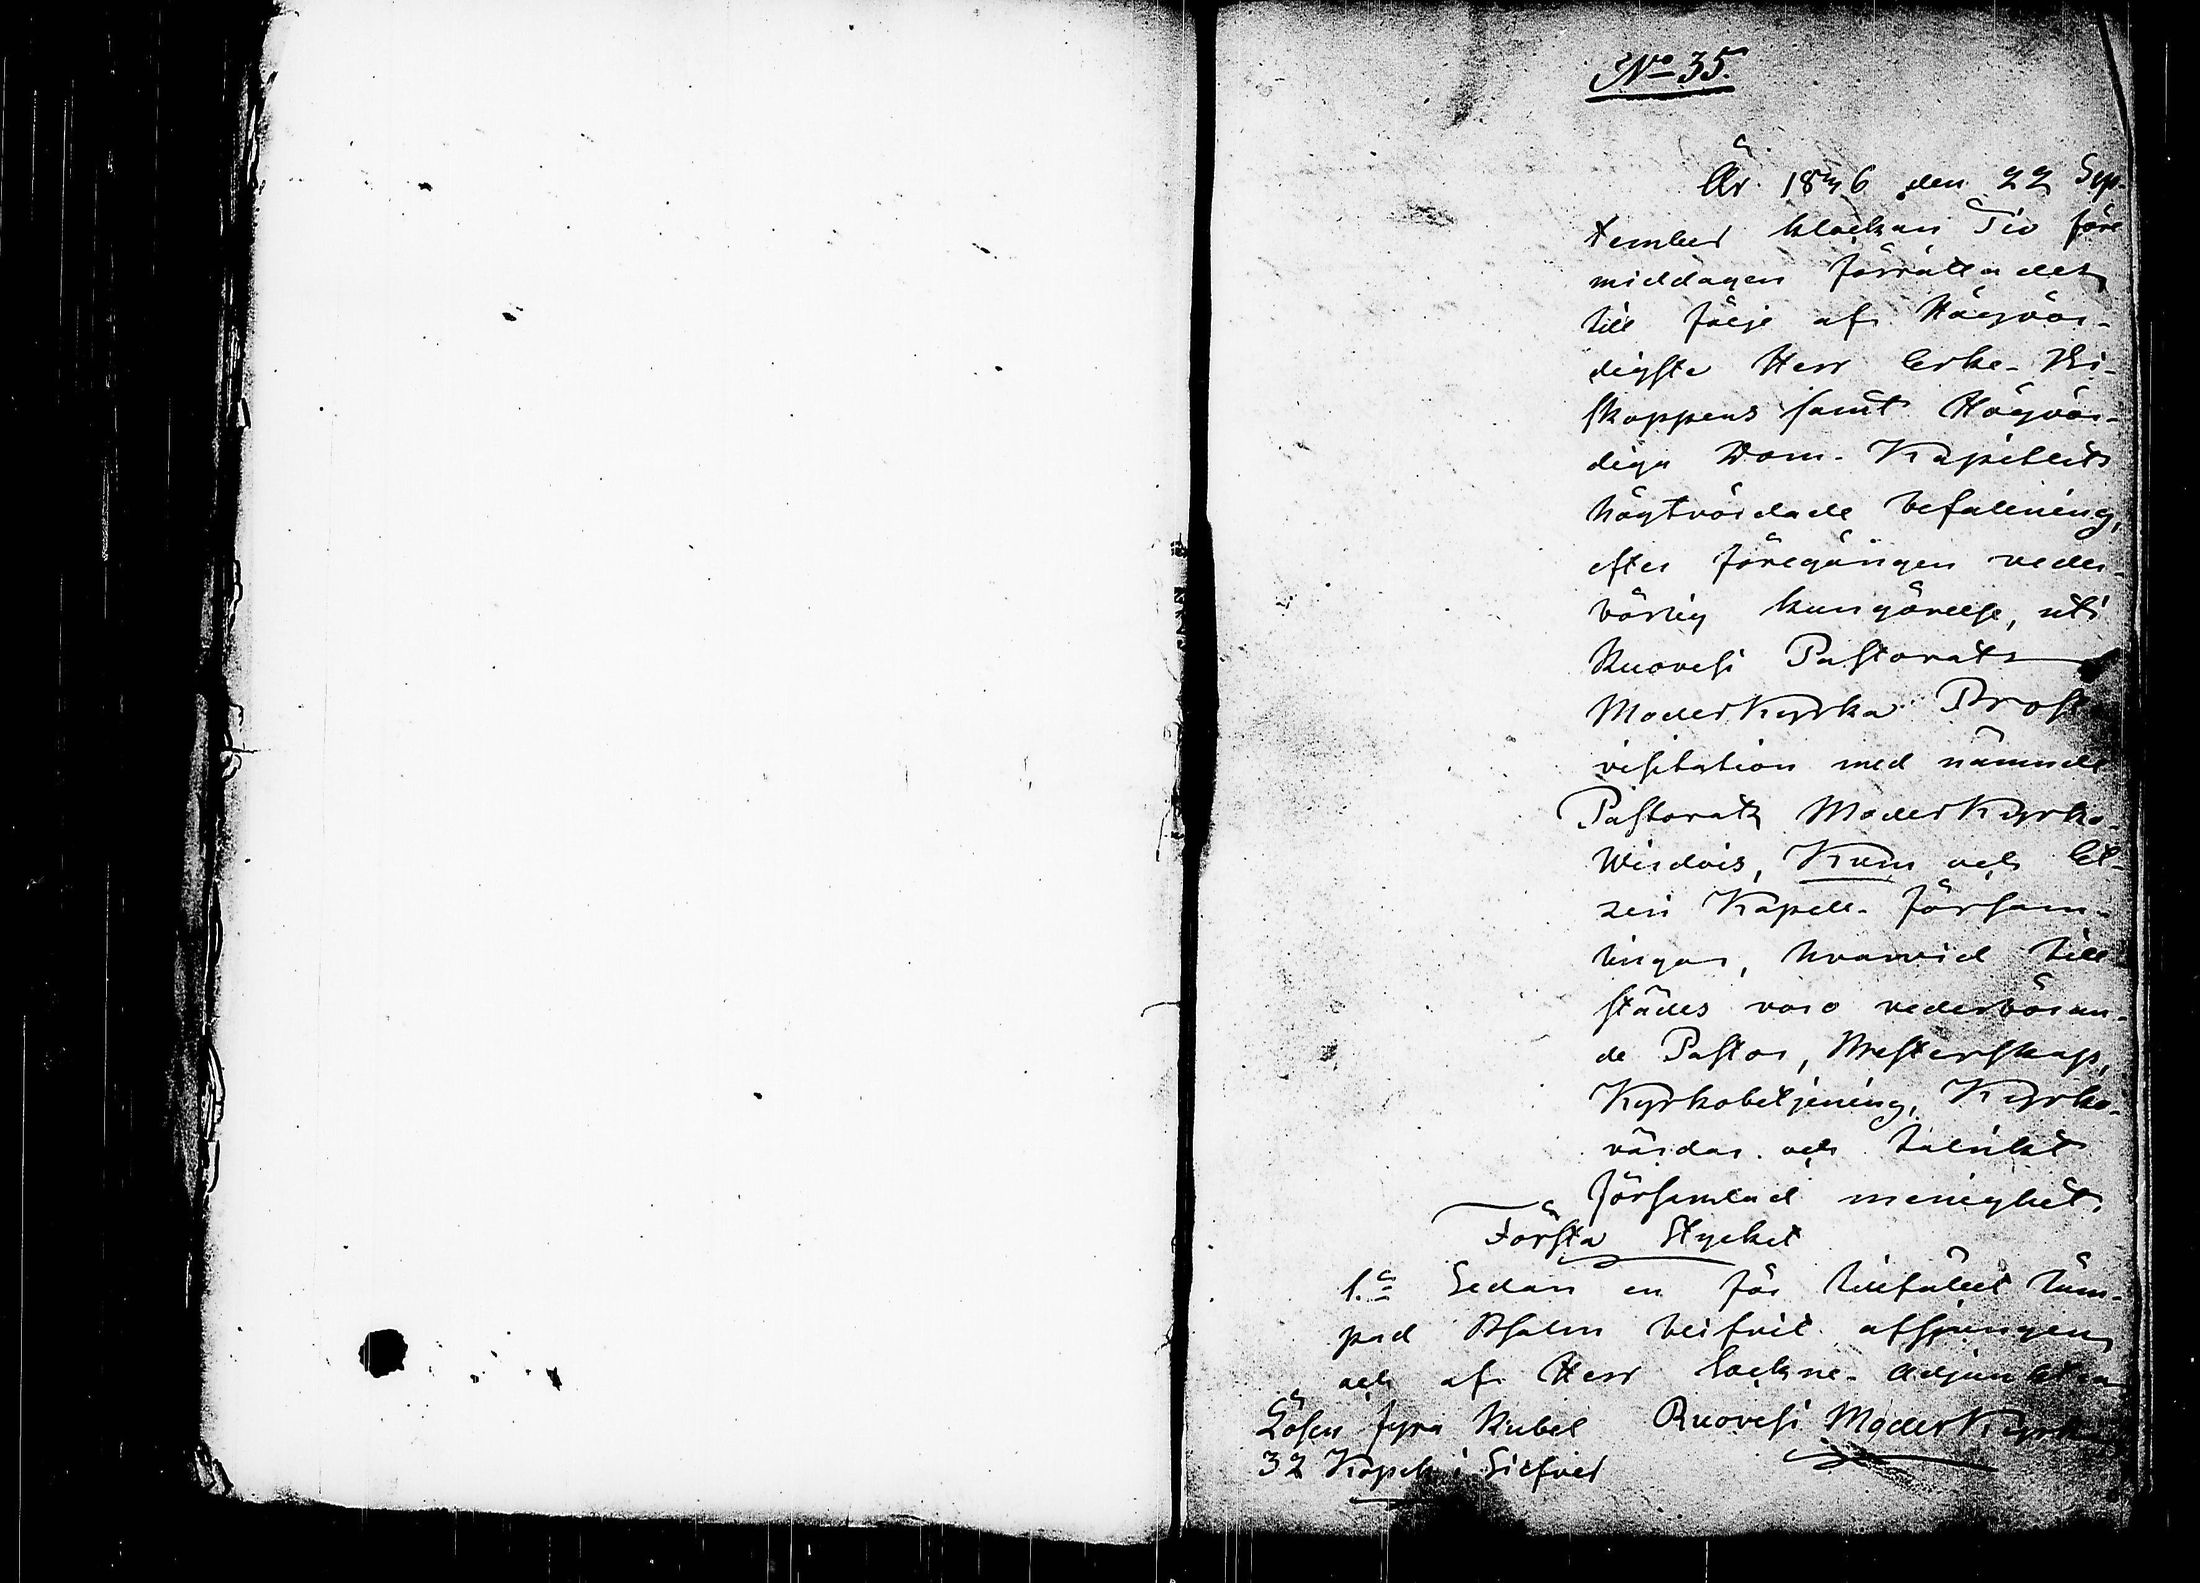 No 35.
År 1846 den 22 Sep-
tember klockan Tio före
middagen förrättades
till följe af Högvör-
digste Herr Erke-Bi-
skoppens samt Högvör-
diga Dom-Kapitlets
högtvördade befallning,
efter föregången veder-
börlig kungörelse, uti
Ruovesi Pastorats
Moderkyrka Prost
visitation med nämnde
Pastorats Moderkyrko-
Wirdois, Kuru och Et-
zeri Kapell-Försam-
lingar, hvarvid till-
städes voro vederböran-
de Pastor, Presterskap,
Kyrkobetjening, Kyrko-
värdar och talrikt
församlad menighet.
Första Stycket
1.o Sedan en för tillfället läm-
pad Psalm blifvit afsjungen
och af Herr Sockne-Adjunkten
Lösen fyra Rubel Ruovesi Moder Kyrka
32 Kopek i Silfver